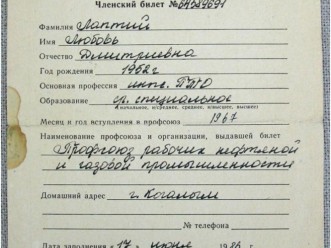 Членский билет №64539691
Фамилия Лаптий
Имя Любовь
Отчество Дмитриевна
Год рождения 1952г
Основная профессия инж. ПТО
Образование ср. специальное
(начальное, н/среднее, среднее, н/высшее, высшее)
Месяц и год вступления в профсоюз 1967
Наименование профсоюза и организации, выдавшей билет
Профсоюз рабочих нефтяной
и газовой промышленности
Домашний адрес г. Когалым
№ телефона
Дата заполнения «17» июля 1986 г.